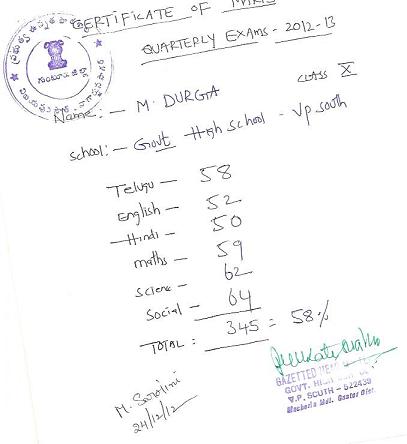 CERTIFICATE OF MARKS
QUARTERLY EXAMS - 2012-13
CLASS X
Name: - M. DURGA
School: - Govt High School - Vp south
Telugu - 58
English - 52
Hindi - 50
maths - 59
Science - 62
Social - 64
TOTAL: 345 = 58%
M. Sarojini
24/12/12
GAZETTED
GOVT. HIGH
V.P. SOUTH - 522439
Macherla Mdl. Guntur Dist.